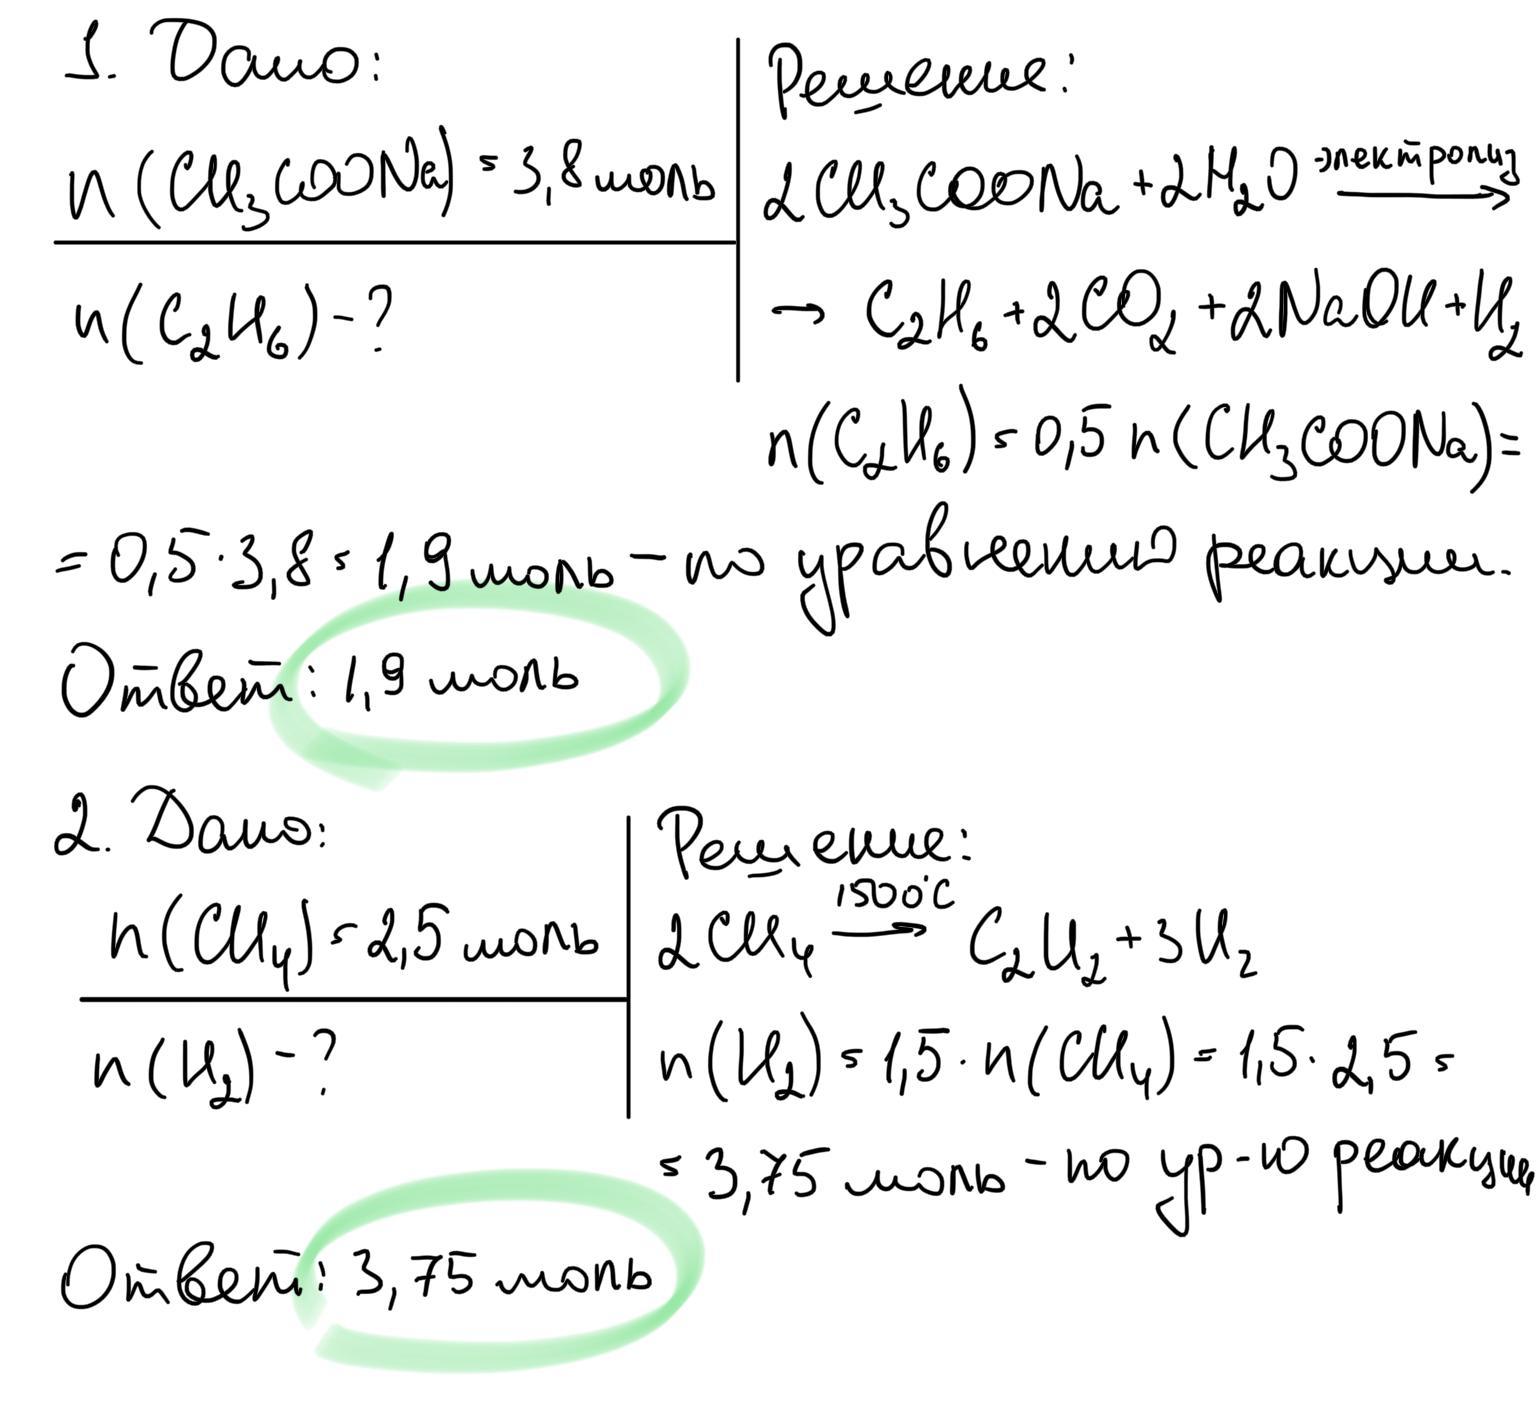 1. Дано:
n(CH₃COONa) = 3,8 моль
n(C₂H₆) - ?
Решение:
2CH₃COONa + 2H₂O электролиз →
→ C₂H₆ + 2CO₂ + 2NaOH + H₂
n(C₂H₆) = 0,5 n(CH₃COONa) =
= 0,5 · 3,8 = 1,9 моль - по уравнению реакции.
Ответ: 1,9 моль
2. Дано:
n(CH₄) = 2,5 моль
n(H₂) - ?
Решение:
1500°C
2CH₄ → C₂H₂ + 3H₂
n(H₂) = 1,5 · n(CH₄) = 1,5 · 2,5 =
= 3,75 моль - по ур-ю реакции
Ответ: 3,75 моль